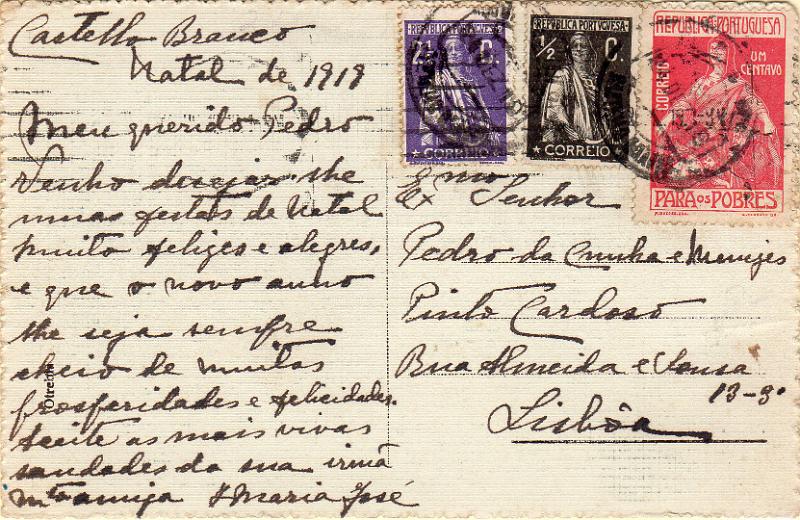 Castello Branco
Natal de 1919
Meu querido Pedro
Venho desejar-lhe
umas festas de Natal
muito felizes e alegres,
e que o novo anno
lhe seja sempre
cheio de muitas
prosperidades e felicidades.
Aceite as mais vivas
saudades da sua irmã
mto amiga Maria José
Oltremi
REPVBLICA PORTVGVESA
2½ C.
CORREIO
REPVBLICA PORTVGVESA
½ C.
CORREIO
REPUBLICA PORTUGUESA
UM
CENTAVO
CORREIO
PARA OS POBRES
Exmo Senhor
Pedro da Cunha e Menezes
Pinto Cardoso
Rua Almeida e Sousa
13-3º
Lisbôa